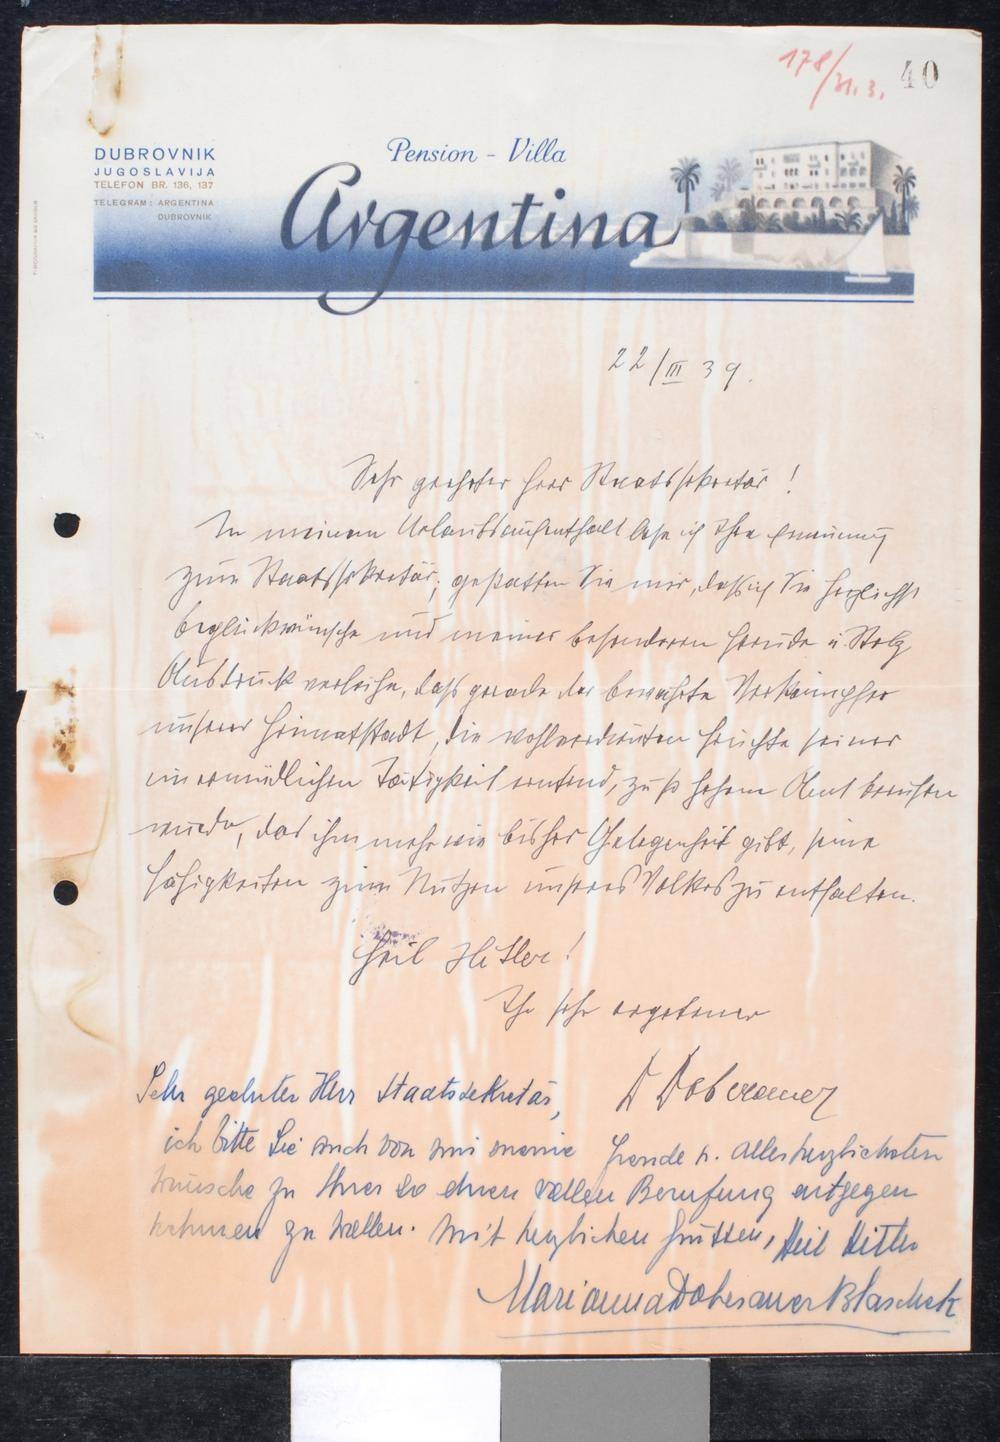 178/31.3.
40
DUBROVNIK
JUGOSLAVIJA
TELEFON BR. 136, 137
TELEGRAM: ARGENTINA
DUBROVNIK
Pension - Villa
Argentina
22/III 39.
Sehr geehrter Herr Staatssekretär!
In meinem Urlaubsaufenthalt lese ich Ihre Ernennung
zum Staatssekretär; gestatten Sie mir, dass ich Sie herzlichst
beglückwünsche und meiner besonderen Freude u. Stolz
Ausdruck verleihe, dass gerade der bewährte Vorkämpfer
unserer Heimatstadt, die wohlverdienten Früchte seiner
unermüdlichen Tätigkeit erntend, zu so hohem Amt berufen
wurde, das ihm mehr wie bisher Gelegenheit gibt, seine
Fähigkeiten zum Nutzen unseres Volkes zu entfalten.
Heil Hitler!
Ihr sehr ergebener
D Dobesamer
Sehr geehrter Herr Staatssekretär,
ich bitte Sie auch von mir meine Freude u. allerherzlichsten
Wünsche zu Ihrer so ehren vollen Berufung entgegen
nehmen zu wollen. Mit herzlichen Grüssen, Heil Hitler
Marianna Dobesamer Blaschek